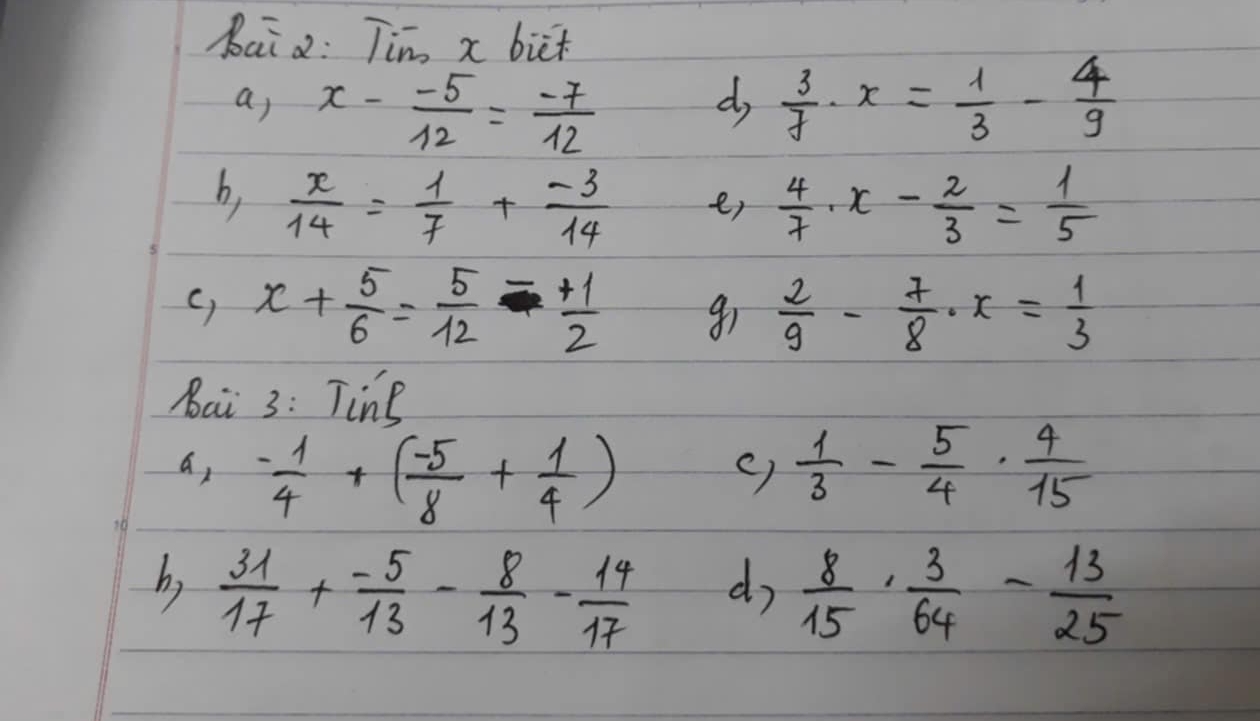 Bài 2: Tìm x biết
a, x - -5/12 = -7/12
d, 3/7 . x = 1/3 - 4/9
b, x/14 = 1/7 + -3/14
e, 4/7 . x - 2/3 = 1/5
c, x + 5/6 = 5/12 - +1/2
g, 2/9 - 7/8 . x = 1/3
Bài 3: Tính
a, -1/4 + (-5/8 + 1/4)
c, 1/3 - 5/4 . 4/15
b, 31/17 + -5/13 - 8/13 - 14/17
d, 8/15 . 3/64 - 13/25
5
10